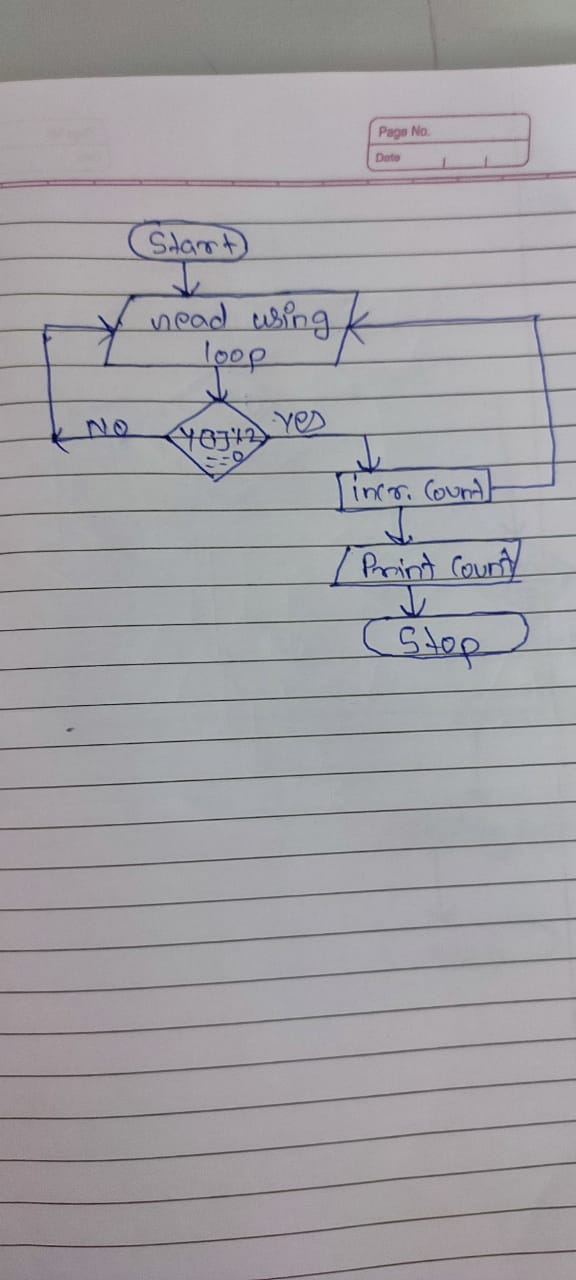 Page No.
Date
Start
read using
loop
NO
Y[i]%2
==0
Yes
incr. Count
Print Count
Stop